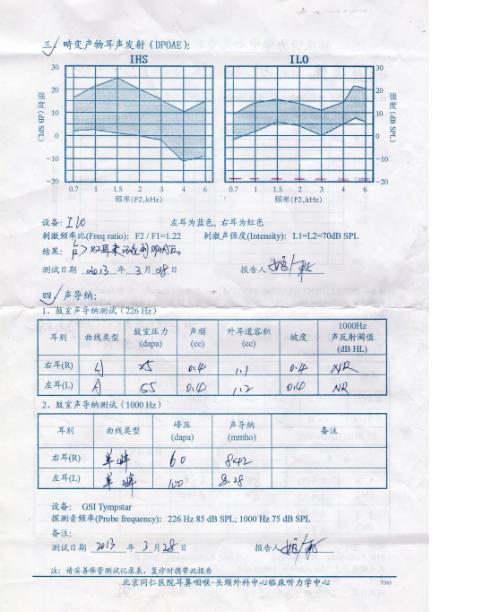 三、畸变产物耳声发射 (DPOAE):
IHS ILO
30 20 10 0 -10 -20
强度 (dB SPL)
0.7 1 1.5 2 3 4 6
频率(F2,kHz)
30 20 10 0 -10 -20
强度 (dB SPL)
0.7 1 1.5 2 3 4 6
频率(F2,kHz)
设备: ILO 左耳为蓝色, 右耳为红色
刺激频率比(Freq ratio): F2 / F1=1.22 刺激声强度(Intensity): L1=L2=70dB SPL
结果:
测试日期 2013 年 3 月 28 日 报告人
四、声导纳:
1、鼓室声导纳测试 (226 Hz)
耳别 曲线类型 鼓室压力 (dapa) 声顺 (cc) 外耳道容积 (cc) 坡度 1000Hz 声反射阈值 (dB HL)
右耳(R) 0.4 1.1 0.4 NR
左耳(L) A 55 0.4 1.2 NR
2、鼓室声导纳测试 (1000 Hz)
耳别 曲线类型 峰压 (dapa) 声导纳 (mmho) 备注
右耳(R) 单峰 60 8.42
左耳(L) 单峰 100 8.28
设备: GSI Tympstar
探测音频率(Probe frequency): 226 Hz 85 dB SPL; 1000 Hz 75 dB SPL
备注:
测试日期 2013 年 3 月 28 日 报告人
注: 请妥善保管测试记录表, 复诊时携带此报告
北京同仁医院耳鼻咽喉-头颈外科中心临床听力学中心